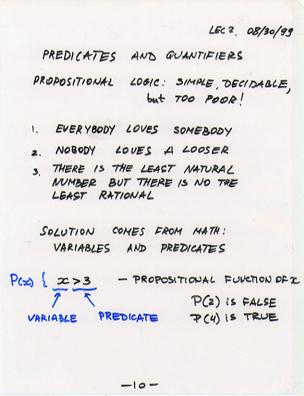 LEC 2. 08/30/99
PREDICATES AND QUANTIFIERS
PROPOSITIONAL LOGIC: SIMPLE, DECIDABLE,
but TOO POOR!
1. EVERYBODY LOVES SOMEBODY
2. NOBODY LOVES A LOOSER
3. THERE IS THE LEAST NATURAL
NUMBER BUT THERE IS NO THE
LEAST RATIONAL
SOLUTION COMES FROM MATH:
VARIABLES AND PREDICATES
P(x) { x > 3 — PROPOSITIONAL FUNCTION OF x
P(2) IS FALSE
VARIABLE PREDICATE P(4) IS TRUE
—10—